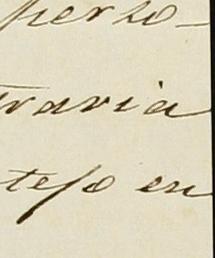 perso-
travia
teso en